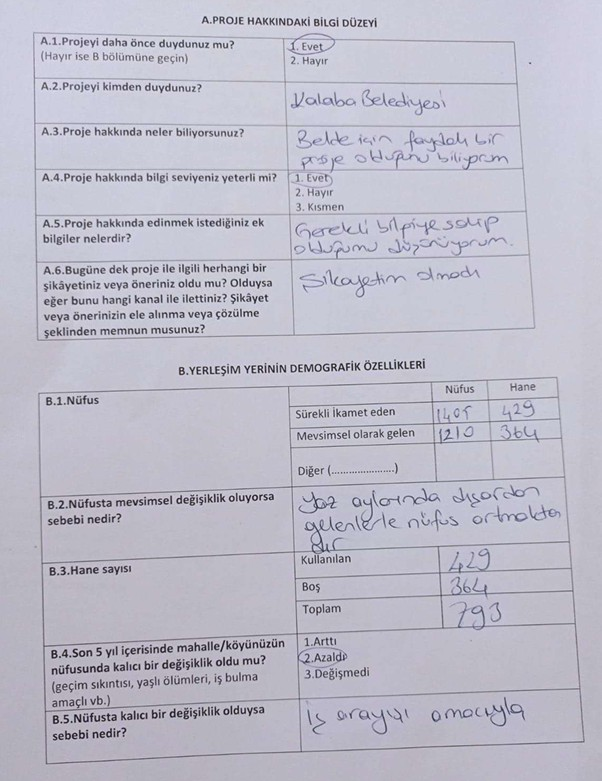 A.PROJE HAKKINDAKİ BİLGİ DÜZEYİ
A.1.Projeyi daha önce duydunuz mu?
(Hayır ise B bölümüne geçin)
1. Evet
2. Hayır
A.2.Projeyi kimden duydunuz?
Kalaba Belediyesi
A.3.Proje hakkında neler biliyorsunuz?
Belde için faydalı bir
proje olduğunu biliyorum
A.4.Proje hakkında bilgi seviyeniz yeterli mi?
1. Evet
2. Hayır
3. Kısmen
A.5.Proje hakkında edinmek istediğiniz ek
bilgiler nelerdir?
Gerekli bilgiye sahip
olduğumu düşünüyorum.
A.6.Bugüne dek proje ile ilgili herhangi bir
şikâyetiniz veya öneriniz oldu mu? Olduysa
eğer bunu hangi kanal ile ilettiniz? Şikâyet
veya önerinizin ele alınma veya çözülme
şeklinden memnun musunuz?
Şikayetim olmadı
B.YERLEŞİM YERİNİN DEMOGRAFİK ÖZELLİKLERİ
B.1.Nüfus
Nüfus Hane
Sürekli İkamet eden 1405 429
Mevsimsel olarak gelen 1210 364
Diğer (......................)
B.2.Nüfusta mevsimsel değişiklik oluyorsa
sebebi nedir?
Yaz aylarında dışardan
gelenlerle nüfus artmakta
dır
B.3.Hane sayısı
Kullanılan 429
Boş 364
Toplam 793
B.4.Son 5 yıl içerisinde mahalle/köyünüzün
nüfusunda kalıcı bir değişiklik oldu mu?
(geçim sıkıntısı, yaşlı ölümleri, iş bulma
amaçlı vb.)
1.Arttı
2.Azaldı
3.Değişmedi
B.5.Nüfusta kalıcı bir değişiklik olduysa
sebebi nedir?
İş arayışı amacıyla